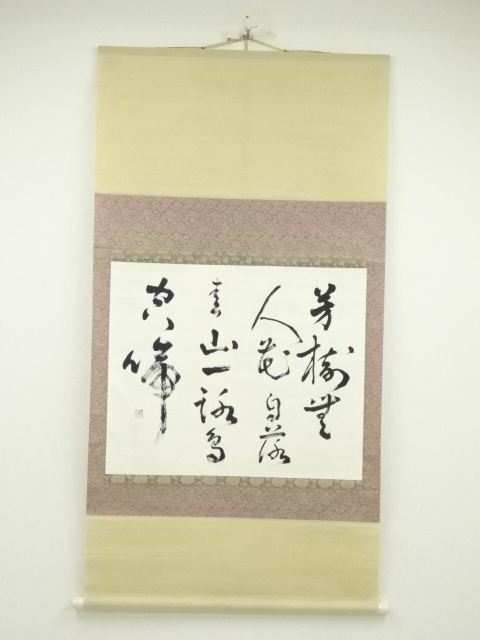 芳樹無
人花自落
春山一路鳥
空啼